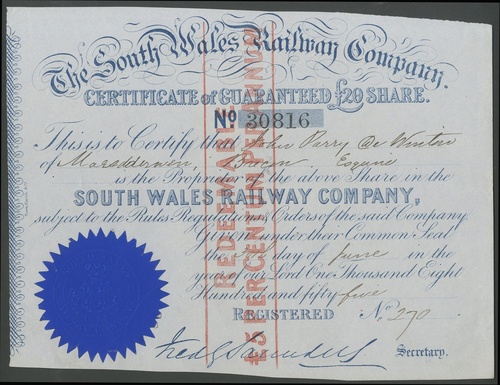 The South Wales Railway Company.
CERTIFICATE of GUARANTEED £20 SHARE.
No 30816
This is to Certify that John Parry De Winton
of Maesdderwen, Brecon, Esquire
is the Proprietor of the above Share in the
SOUTH WALES RAILWAY COMPANY,
subject to the Rules Regulations & Orders of the said Company
Given under their Common Seal
the day of June in the
year of our Lord One Thousand Eight
Hundred and fifty five
REGISTERED No. 270
Fred G Saunders Secretary.
REDEEMABLE
£5 PERCENT IN PERPETUITY